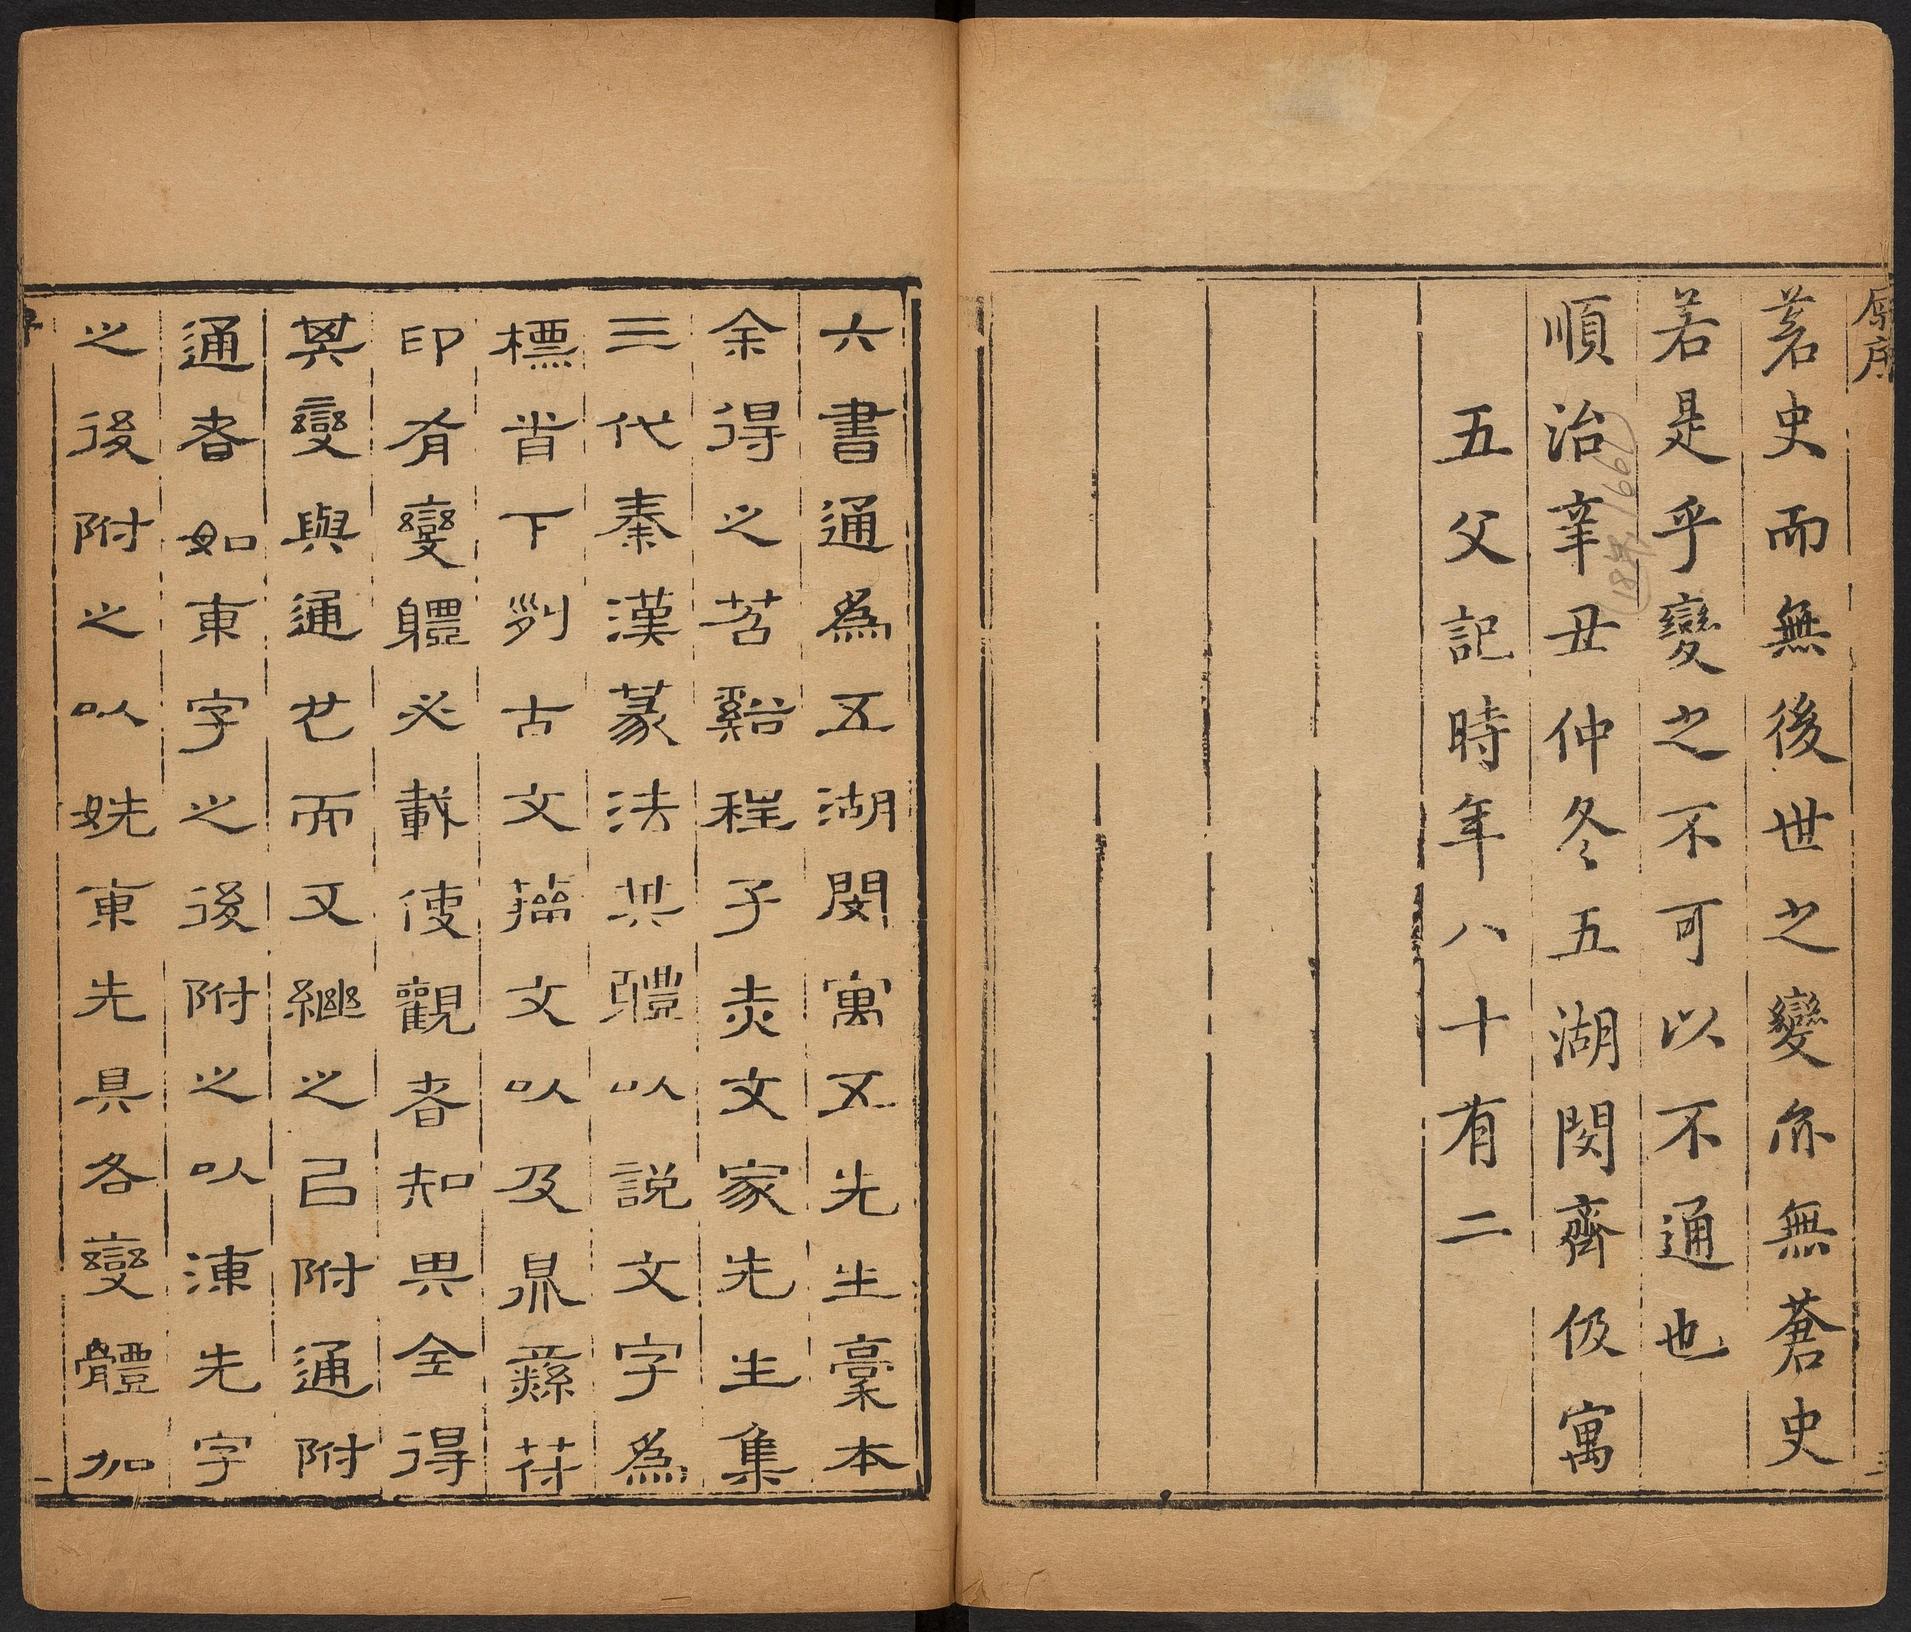 原序
蒼史而無後世之變亦無蒼史
若是乎變之不可以不通也
順治辛丑仲冬五湖閔齊伋寓
五父記時年八十有二
(1661)
(18年)
六書通為五湖閔寓五先生稾本
余得之苕谿程子赤文家先生集
三代秦漢篆法其體以說文字為
標首下列古文籀文以及鼎繇符
印有變體必載使觀者知異仝得
其變與通也而又繼之曰附通附
通者如東字之後附之以涷先字
之後附之以姺東先具各變體加
序
一